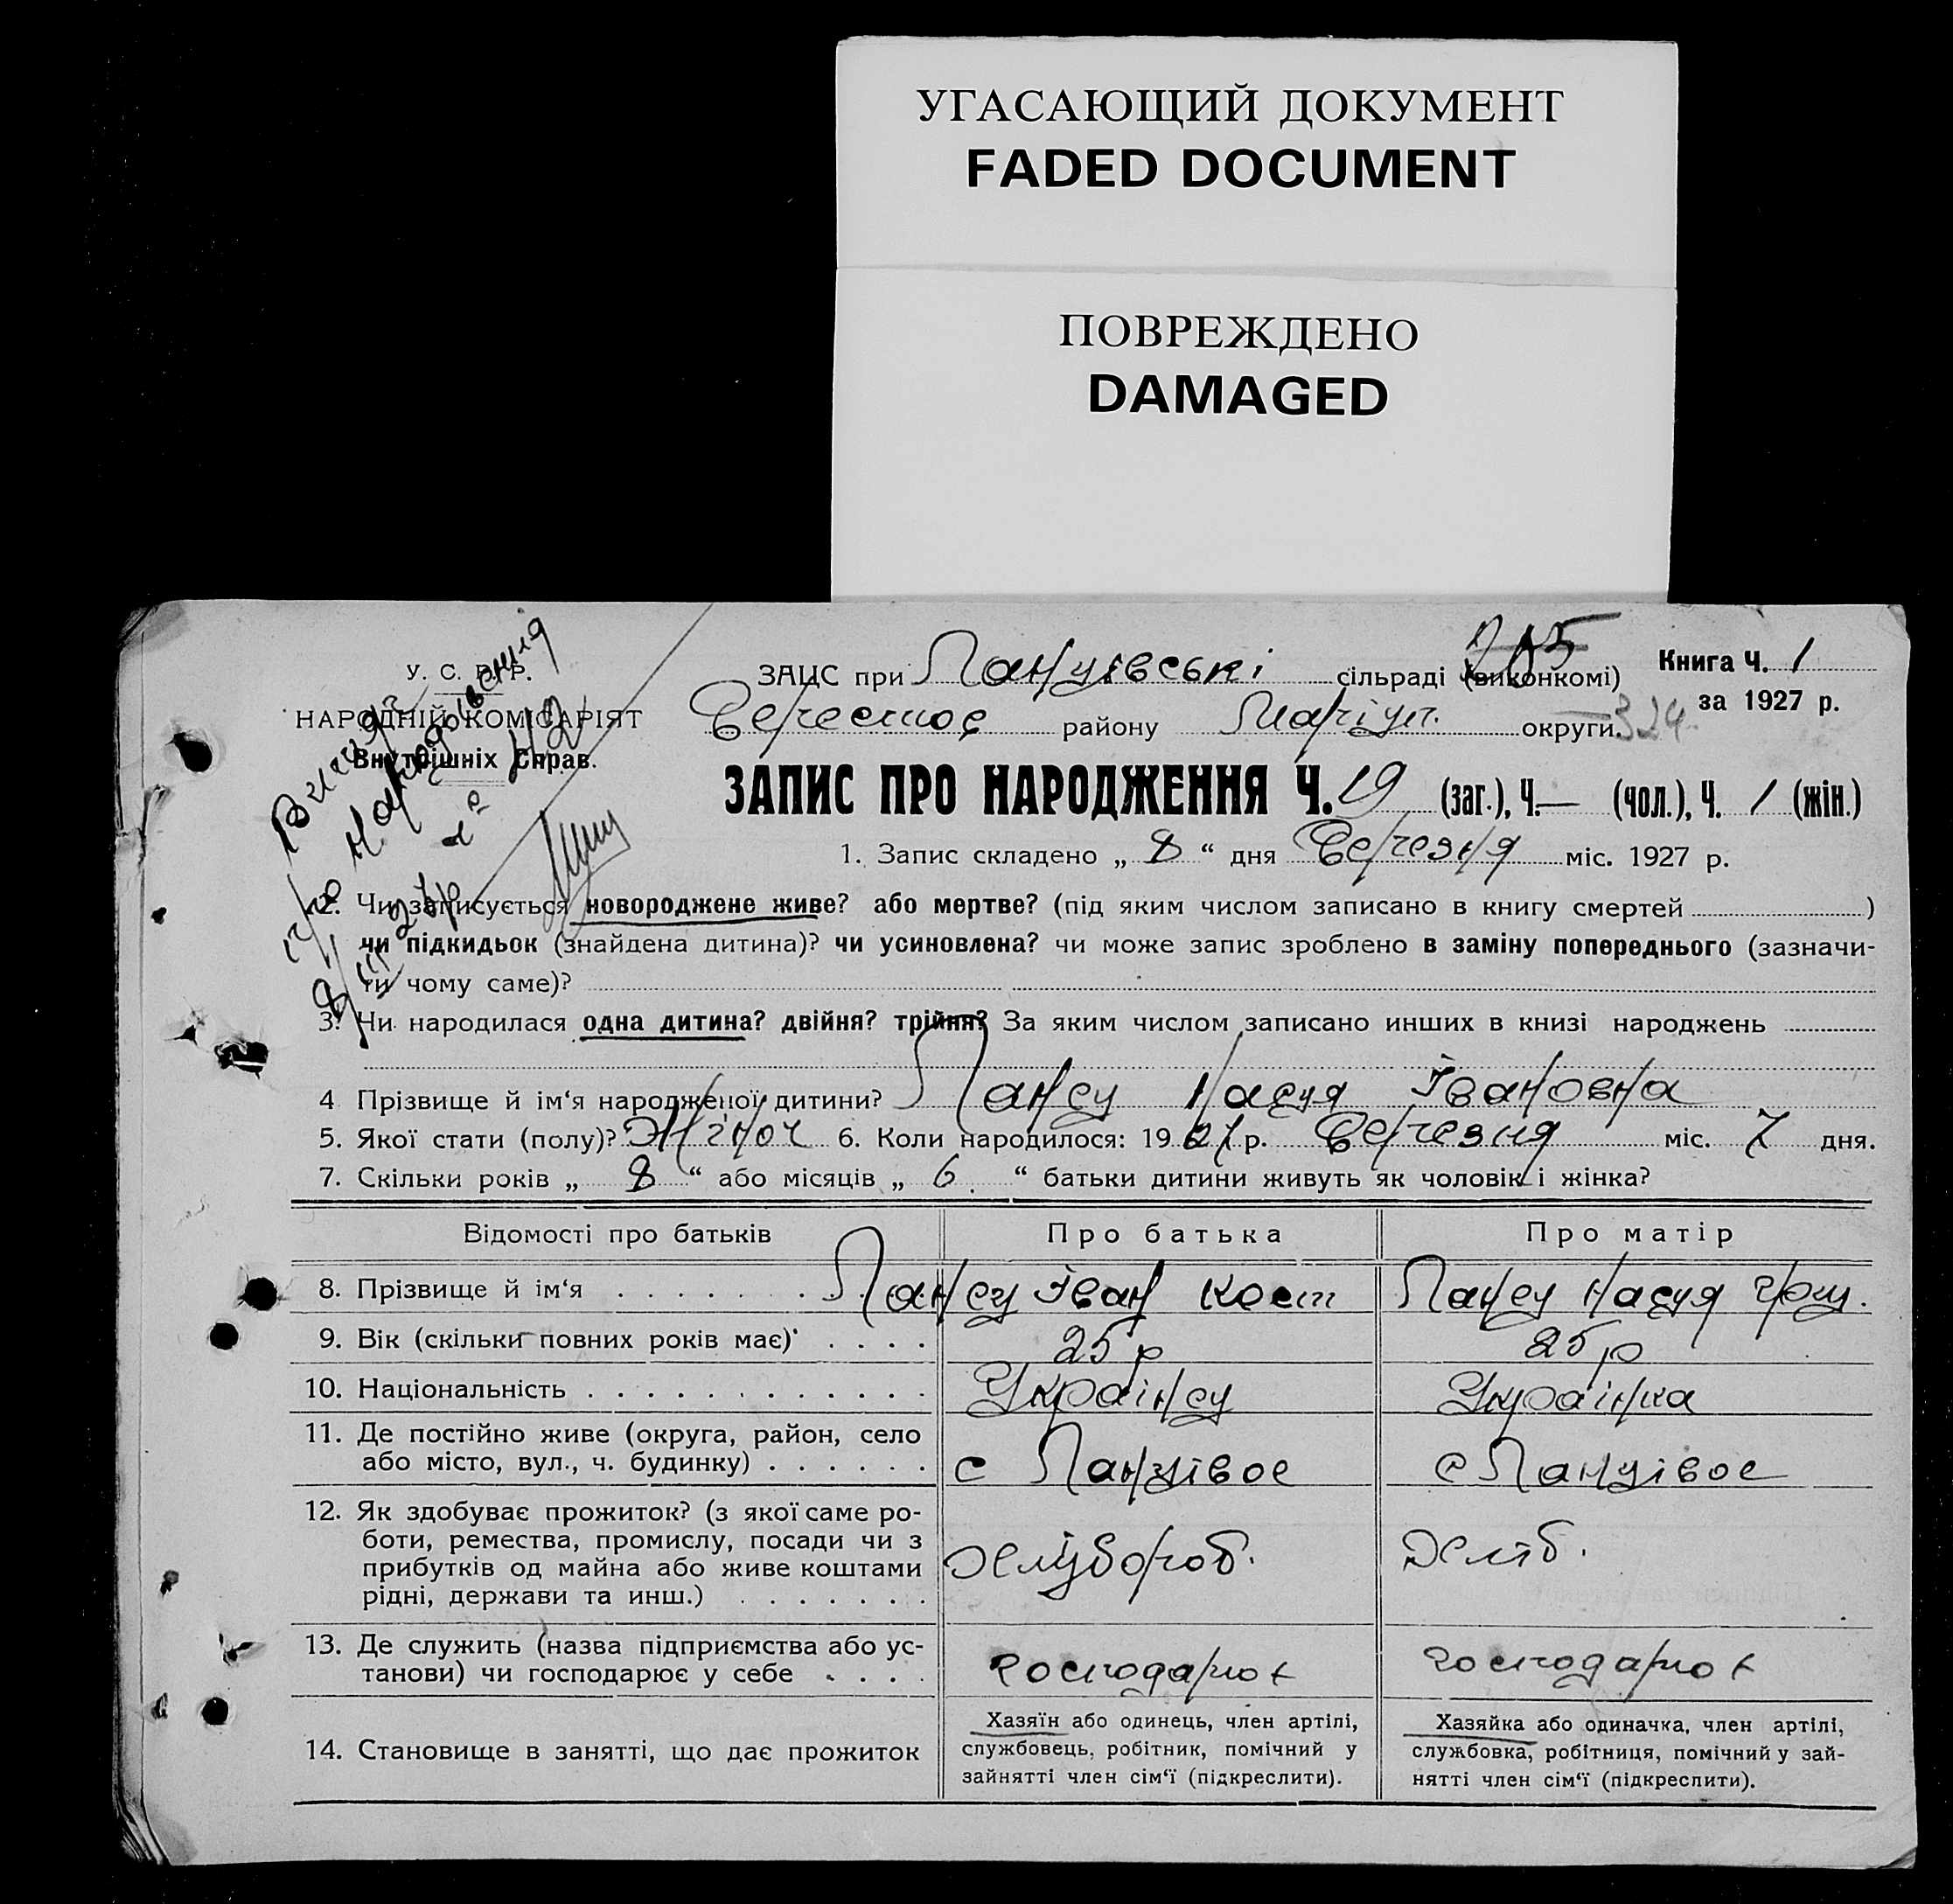 УГАСАЮЩИЙ ДОКУМЕНТ
FADED DOCUMENT
ПОВРЕЖДЕНО
DAMAGED
У. С. Р. Р.
НАРОДНІЙ КОМІСАРІЯТ
Внутрішніх Справ.
ЗАЦС при Ланцівські сільраді (виконкомі)
Книга Ч. 1
за 1927 р.
району Маріуп. округи. 324
ЗАПИС ПРО НАРОДЖЕННЯ Ч. 19 (заг.), Ч. — (чол.), Ч. 1 (жін.)
1. Запис складено „ 8 “ дня Березня міс. 1927 р.
2. Чи записується новороджене живе? або мертве? (під яким числом записано в книгу смертей )
чи підкидьок (знайдена дитина)? чи усиновлена? чи може запис зроблено в заміну попереднього (зазначи-
ти чому саме)?
3. Чи народилася одна дитина? двійня? трійня? За яким числом записано инших в книзі народжень
4 Прізвище й ім‘я народженої дитини? Івановна
5. Якої стати (полу)? Жіноч 6. Коли народилося: 1927 р. Березня міс. 7 дня.
7. Скільки років „ 8 “ або місяців „ 6 “ батьки дитини живуть як чоловік і жінка?
Відомості про батьків Про батька Про матір
8. Прізвище й ім‘я . . . . . . . Іван Кост
9. Вік (скільки повних років має) . . . . 25 р 25 р
10. Національність . . . . . . . . . . . . Українец Українка
11. Де постійно живе (округа, район, село
або місто, вул., ч. будинку) . . . . . . с Ланцівое с Ланцівое
12. Як здобуває прожиток? (з якої саме ро-
боти, ремества, промислу, посади чи з
прибутків од майна або живе коштами
рідні, держави та инш.) . . . . . . . Хлібороб. Хліб.
13. Де служить (назва підприємства або ус-
танови) чи господарює у себе . . . . господарює господарює
14. Становище в занятті, що дає прожиток
Хазяїн або одинець, член артілі,
службовець, робітник, помічний у
зайнятті член сім‘ї (підкреслити).
Хазяйка або одиначка, член артілі,
службовка, робітниця, помічний у зай-
нятті член сім‘ї (підкреслити).